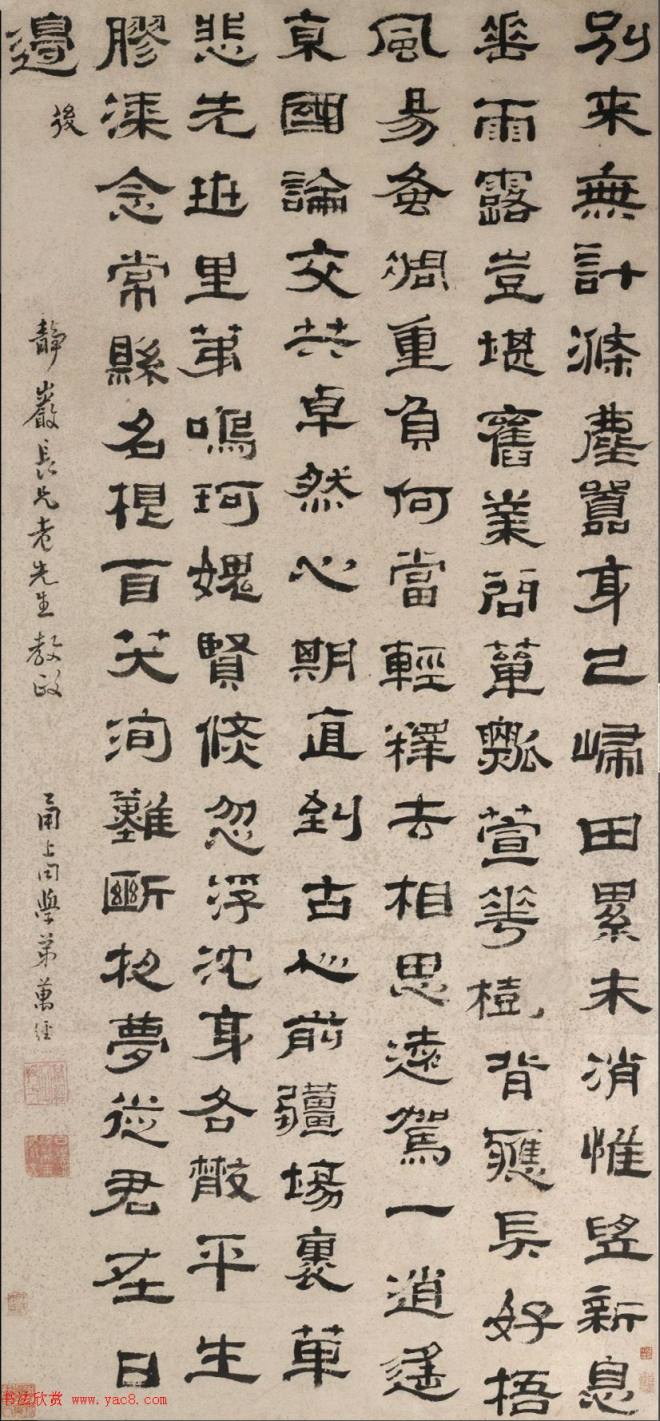 別来無計滌塵囂身已歸田累未消惟望新恩
垂雨露豈堪舊業簞瓢萱花樹背應長好梧
風易蚤凋重負何當輕釋去相思遠駕一逍遙
京國論交共卓然心期直到古人前疆場裹革
悲先世里第鳴珂媿賢倏忽浮沈身各散平生
膠漆念常縣名根百笑洵難斷夜夢從君在日
邊 後
靜巖長兄老先生教政
甬上同學弟萬經
书法欣赏 www.yac8.com